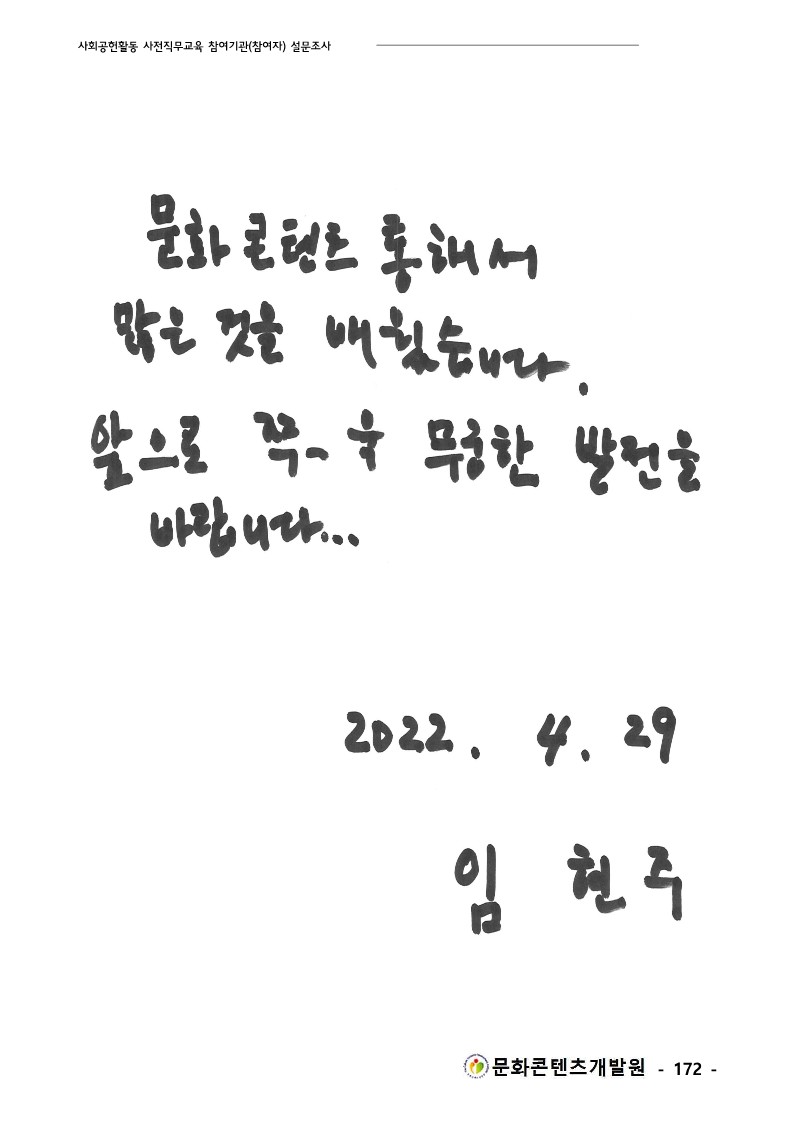 사회공헌활동 사전직무교육 참여기관(참여자) 설문조사
문화 콘텐츠 통해서
많은 것을 배웠습니다.
앞으로 쭈~욱 무궁한 발전을
바랍니다...
2022. 4. 29
임 현 주
문화콘텐츠개발원 - 172 -